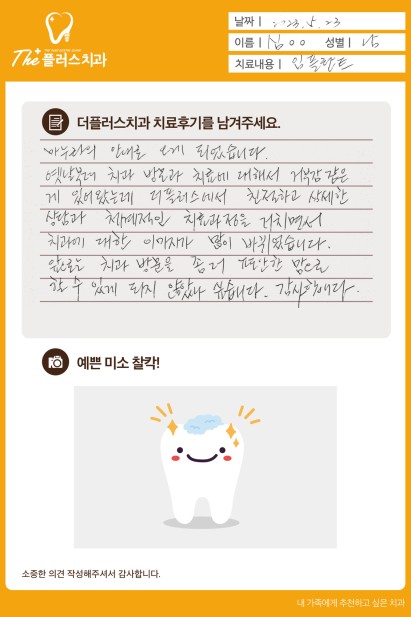 The+ 플러스치과
날짜 | 2023. 5. 23
이름 | 심○○ 성별 | 남
치료내용 | 임플란트
더플러스치과 치료후기를 남겨주세요.
마누라의 안내로 오게 되었습니다.
옛날부터 치과 방문과 치료에 대해서 거부감 같은
게 있어왔는데 더플러스에서 친절하고 상세한
상담과 체계적인 치료과정을 거치면서
치과에 대한 이미지가 많이 바뀌었습니다.
앞으로는 치과 방문을 좀 더 편안한 맘으로
할 수 있게 되지 않았나 싶습니다. 감사합니다.
예쁜 미소 찰칵!
소중한 의견 작성해주셔서 감사합니다.
내 가족에게 추천하고 싶은 치과